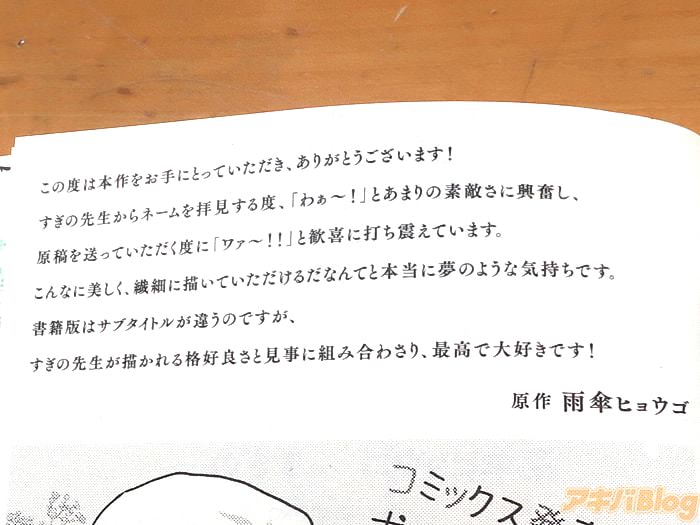 この度は本作をお手にとっていただき、ありがとうございます！
すぎの先生からネームを拝見する度、「わぁ〜！」とあまりの素敵さに興奮し、
原稿を送っていただく度に「ワァ〜！！」と歓喜に打ち震えています。
こんなに美しく、繊細に描いていただけるだなんてと本当に夢のような気持ちです。
書籍版はサブタイトルが違うのですが、
すぎの先生が描かれる格好良さと見事に組み合わさり、最高で大好きです！
原作 雨傘ヒョウゴ
コミックス発
アキバBlog